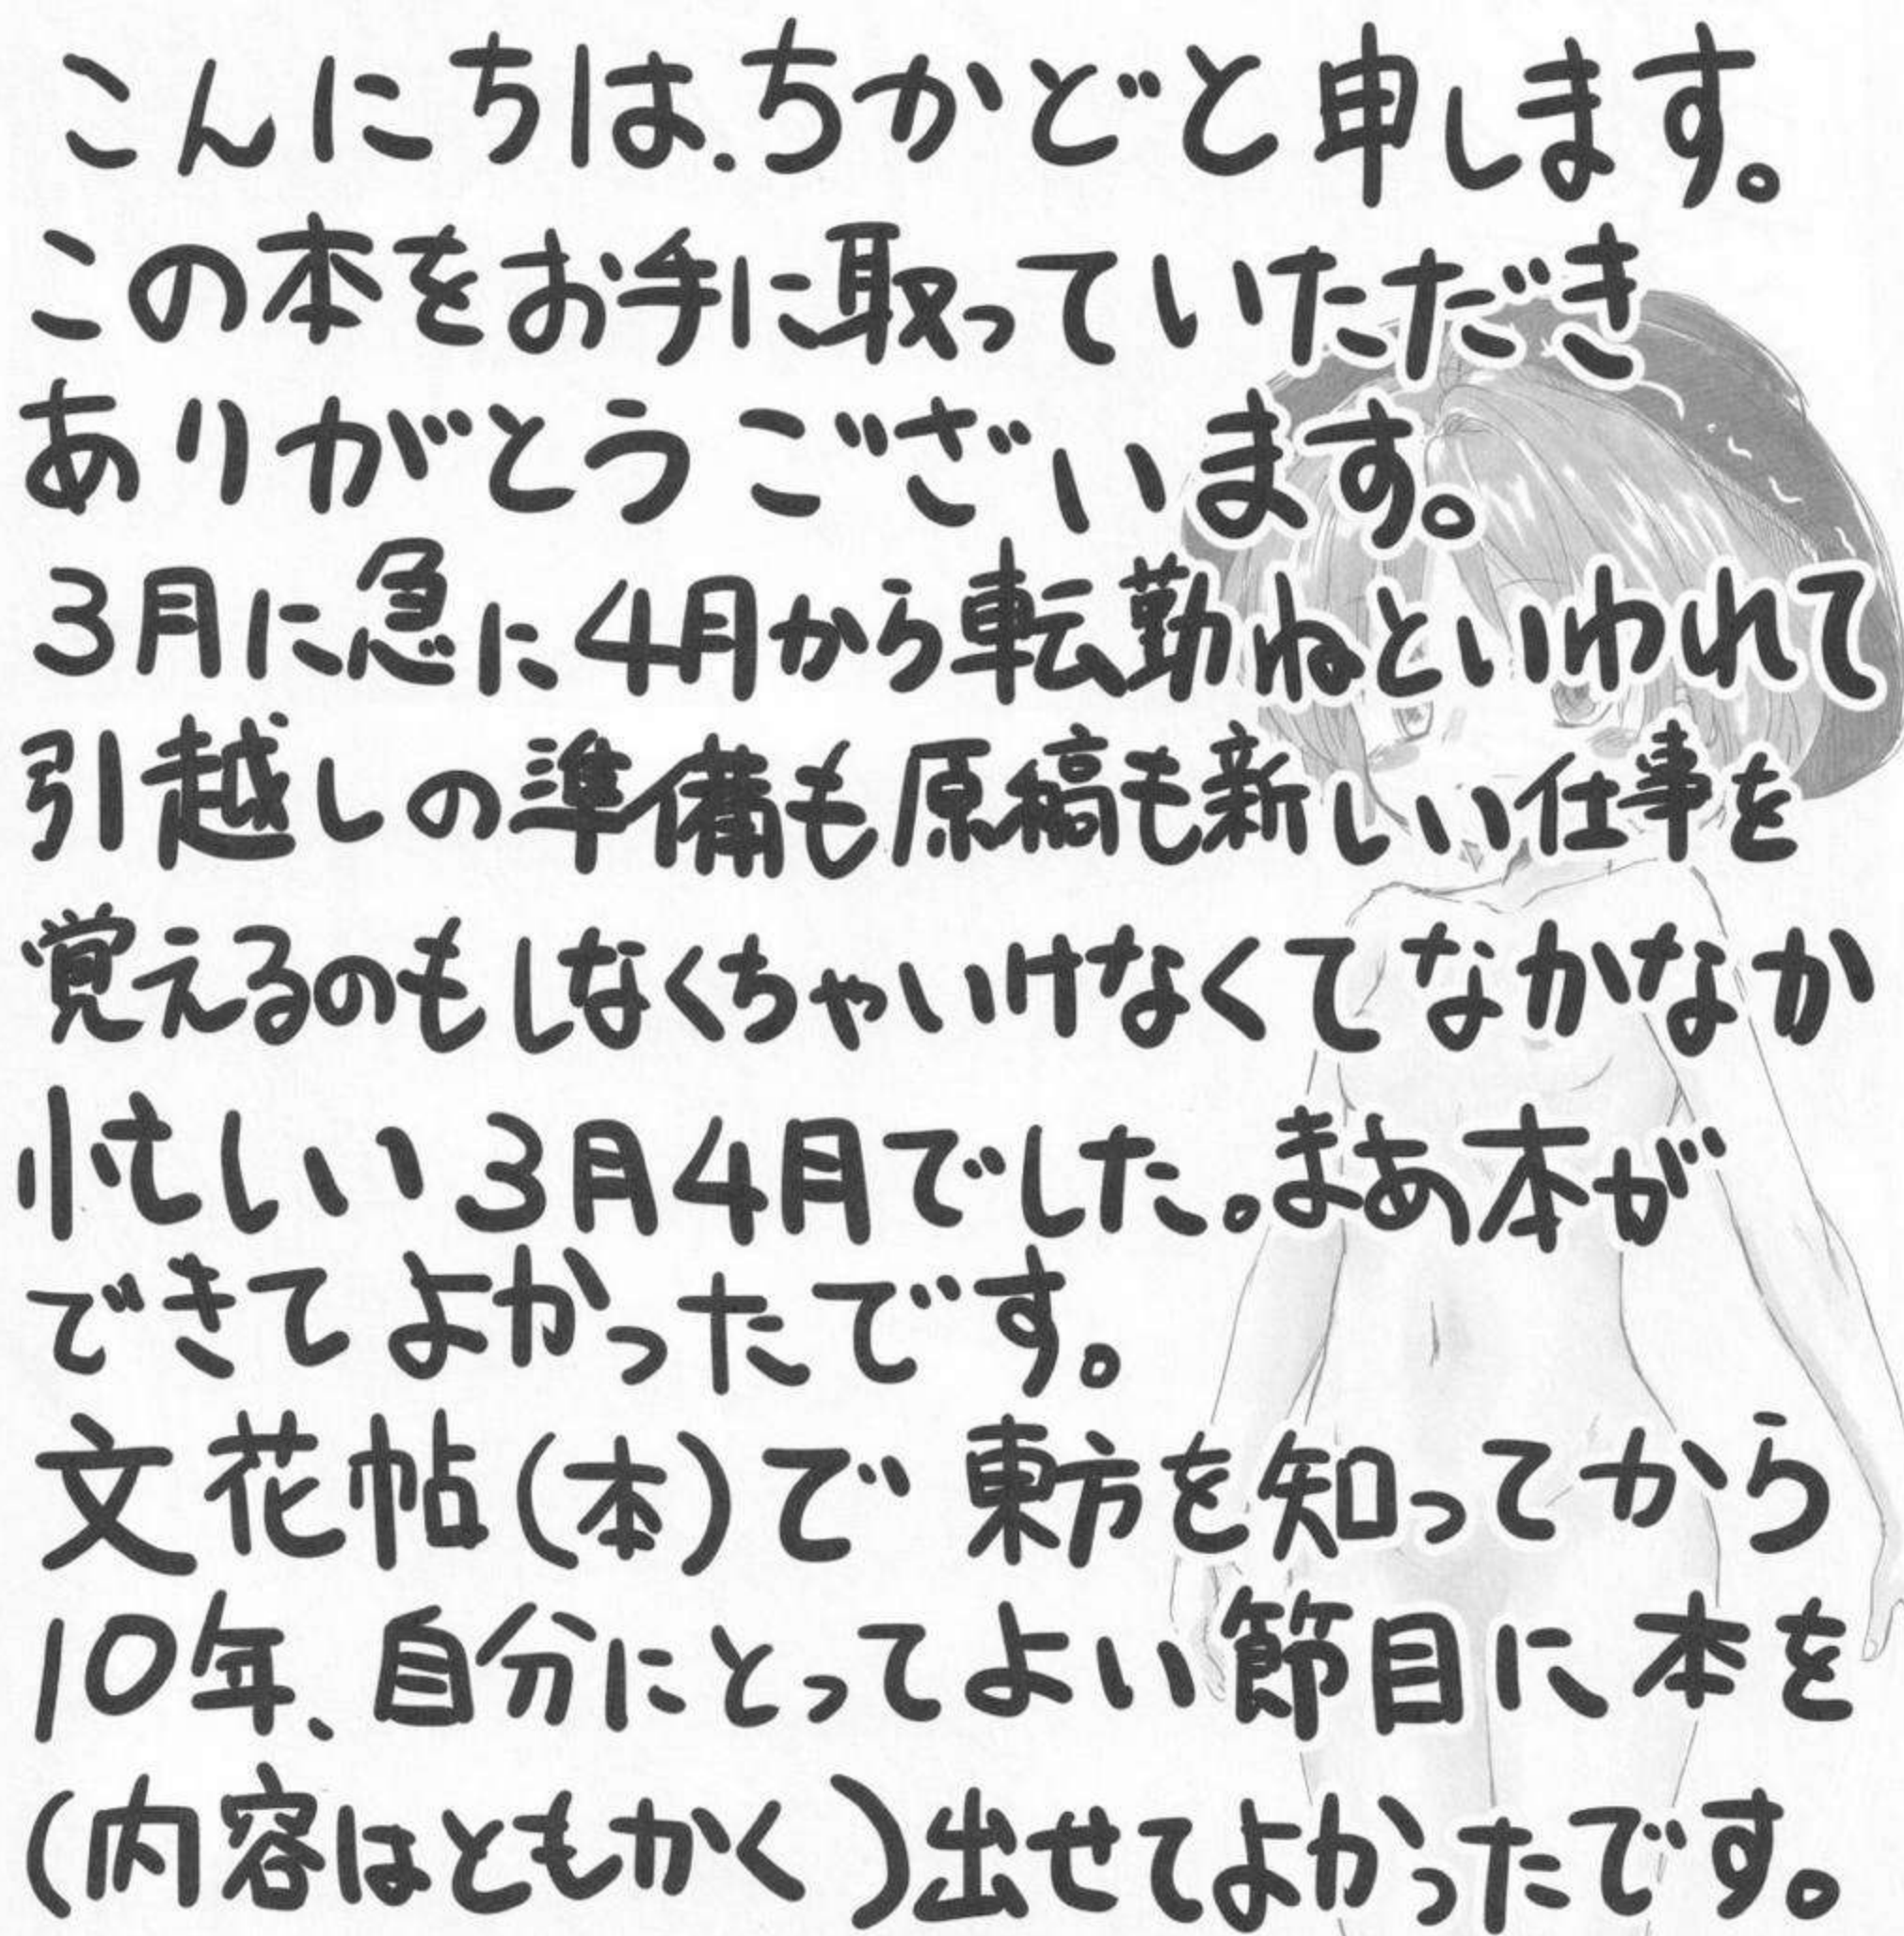 こんにちは、ちかどと申します。
この本をお手に取っていただき
ありがとうございます。
3月に急に4月から転勤ねといわれて
引越しの準備も原稿も新しい仕事を
覚えるのもしなくちゃいけなくてなかなか
忙しい3月4月でした。まあ本が
できてよかったです。
文花帖(本)で東方を知ってから
10年、自分にとってよい節目に本を
(内容はともかく)出せてよかったです。